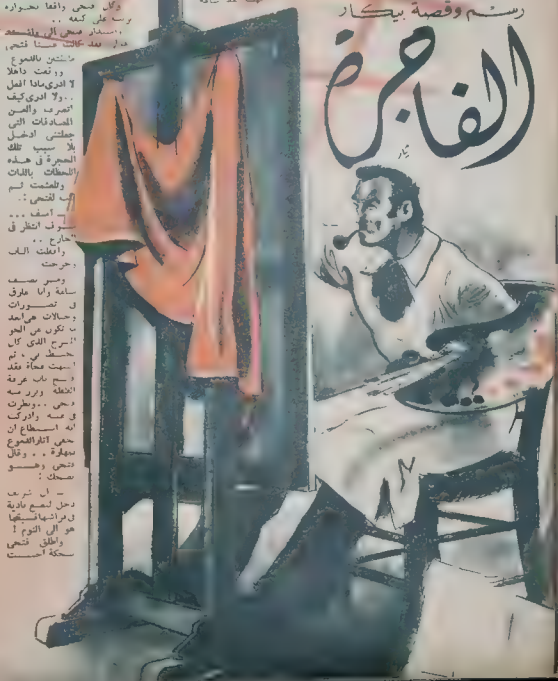 رسم وقصة بيكار
الفاجرة
وكان فتحى واقفا بجواره
يربت على كتفه ..
واستدار فتحى الى
عينا فتحى
بالدموع
ووقفت داهلا
لا ادرى ماذا افعل
.. ولا ادرى كيف
اتصرف والعن
المصادفات التى
جعلتنى ادخل
بلا سبب تلك
الحجرة فى هذه
اللحظات بالذات
وتلعثمت ثم
قلت لفتحى :
ـ آسف ...
سوف انتظر فى
الخارج ..
واغلقت الباب
وخرجت
ومر نصف
ساعة وانا غارق
فى تصورات
وخيالات هى ابعد
ما تكون عن الجو
المرح الذى كان
يحيط بى ، ثم
فجأة فقد
فتح باب غرفة
الطفلة وبرز منه
فتحى .. ونظرت
فى عينيه وادركت
انه استطاع ان
يخفى آثار الدموع
بمهارة .. وقال
فتحى وهو
يضحك :
ـ ان شريف
دخل ليضع نادية
فى فراشها فسبقها
هو الى النوم !
واطلق فتحى
ضحكة احسست